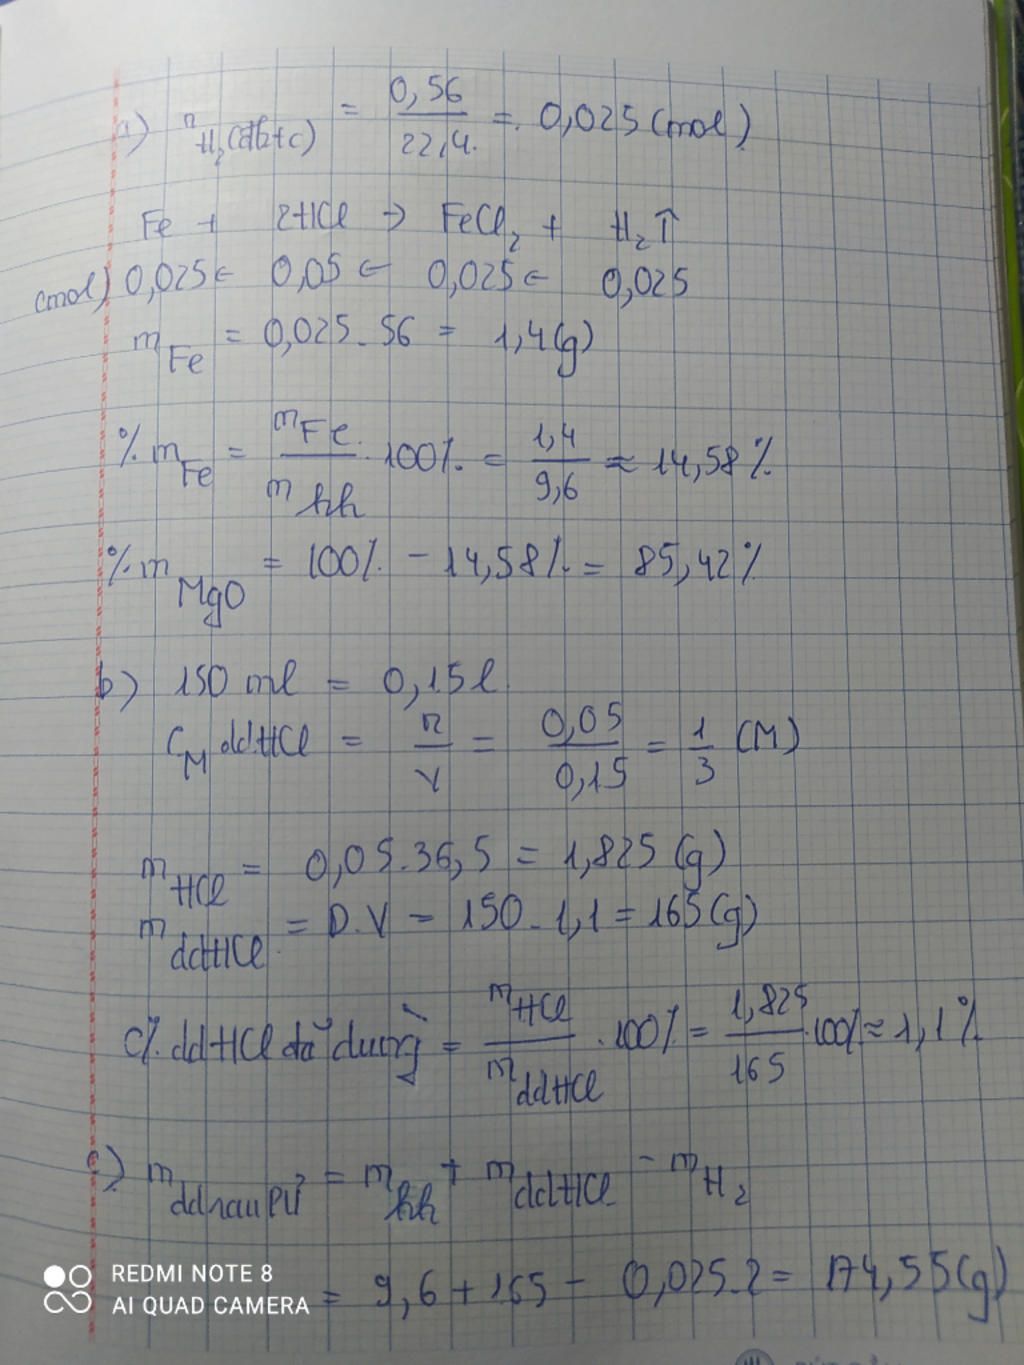 a) nH₂(đktc) = 0,56/22,4 = 0,025 (mol)
Fe + 2HCl → FeCl₂ + H₂↑
(mol) 0,025 ← 0,05 ← 0,025 ← 0,025
mFe = 0,025.56 = 1,4(g)
%mFe = mFe/mhh.100% = 1,4/9,6 ≈ 14,58%
%mMgO = 100% - 14,58% = 85,42%
b) 150 ml = 0,15l
CM ddHCl = n/V = 0,05/0,15 = 1/3 (M)
mHCl = 0,05.36,5 = 1,825 (g)
mddHCl = D.V = 150.1,1 = 165(g)
C% ddHCl đã dùng = mHCl/mddHCl.100% = 1,825/165.100% ≈ 1,1%
c) mddsau PƯ = mhh + mddHCl - mH₂
= 9,6 + 165 - 0,025.2 = 174,55(g)
REDMI NOTE 8
AI QUAD CAMERA